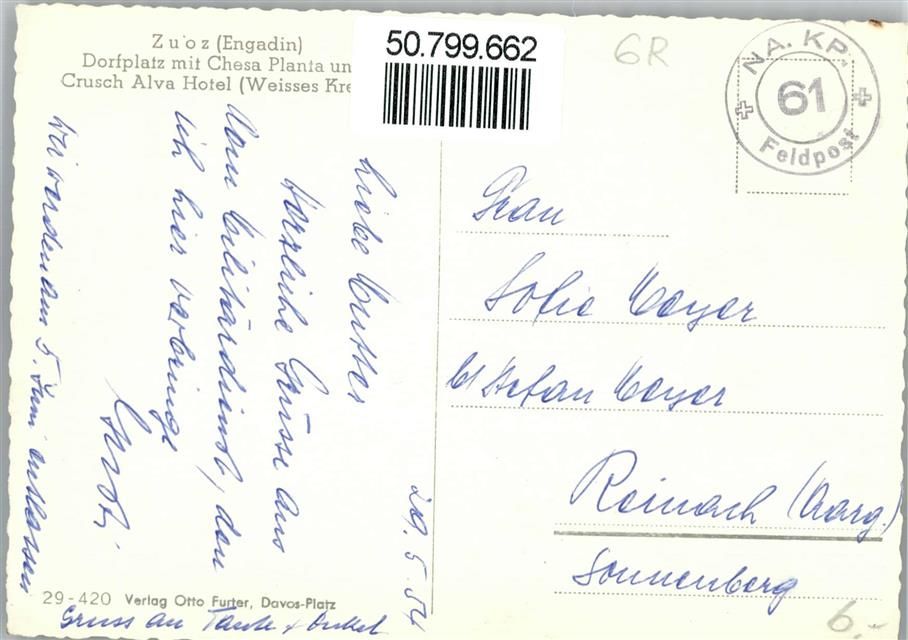 Zuoz (Engadin)
Dorfplatz mit Chesa Planta un
Crusch Alva Hotel (Weisses Kre
50.799.662
6R
NA. KP.
61
Feldpost
29. 5. 54
Liebe Mutter
Herzliche Grüsse aus
dem Militärdienst, den
ich hier verbringe
Wir werden am 5. Juni entlassen
Gruss an Tante + Onkel
Frau
Sofie Meyer
b/ Stefan Meyer
Reinach (Aarg.)
Sonnenberg
29-420 Verlag Otto Furter, Davos-Platz
6.-